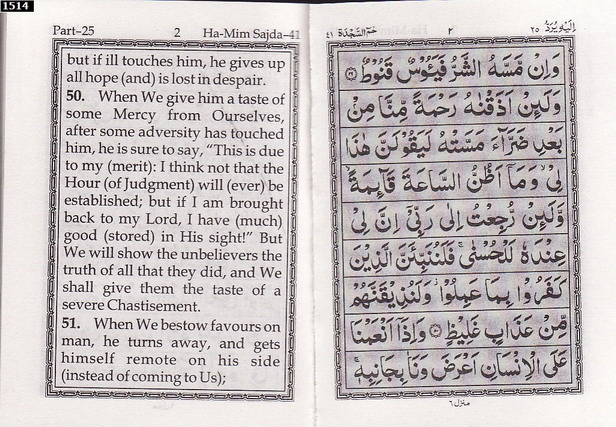 1514
Part–25 2 Ha-Mim Sajda–41
but if ill touches him, he gives up
all hope (and) is lost in despair.
50. When We give him a taste of
some Mercy from Ourselves,
after some adversity has touched
him, he is sure to say, “This is due
to my (merit): I think not that the
Hour (of Judgment) will (ever) be
established; but if I am brought
back to my Lord, I have (much)
good (stored) in His sight!” But
We will show the unbelievers the
truth of all that they did, and We
shall give them the taste of a
severe Chastisement.
51. When We bestow favours on
man, he turns away, and gets
himself remote on his side
(instead of coming to Us);
اِلَيْهِ يُرَدُّ ٢٥ ٢ حٰمٓ السَّجْدَة ٤١
وَاِنْ مَّسَّهُ الشَّرُّ فَيَـُٔوْسٌ قَنُوْطٌ ﴿٤٩﴾
وَلَئِنْ اَذَقْنٰهُ رَحْمَةً مِّنَّا مِنْۢ
بَعْدِ ضَرَّآءَ مَسَّتْهُ لَيَقُوْلَنَّ هٰذَا
لِيْ ۙ وَمَآ اَظُنُّ السَّاعَةَ قَآئِمَةً ۙ
وَّلَئِنْ رُّجِعْتُ اِلٰى رَبِّيْٓ اِنَّ لِيْ
عِنْدَهٗ لَلْحُسْنٰى ۚ فَلَنُنَبِّئَنَّ الَّذِيْنَ
كَفَرُوْا بِمَا عَمِلُوْا ۡ وَلَنُذِيْقَنَّهُمْ
مِّنْ عَذَابٍ غَلِيْظٍ ﴿٥٠﴾ وَاِذَآ اَنْعَمْنَا
عَلَى الْاِنْسَانِ اَعْرَضَ وَنَاٰ بِجَانِبِهٖ ۚ
منزل ٦